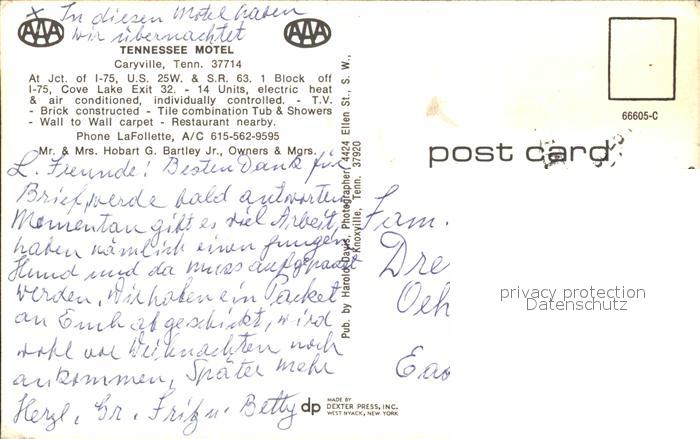 x In diesen Motel haben
wir übernachtet
AAA
AAA
TENNESSEE MOTEL
Caryville, Tenn. 37714
At Jct. of I-75, U.S. 25W. & S.R. 63. 1 Block off
I-75, Cove Lake Exit 32. - 14 Units, electric heat
& air conditioned, individually controlled. - T.V.
- Brick constructed - Tile combination Tub & Showers
- Wall to Wall carpet - Restaurant nearby.
Phone LaFollette, A/C 615-562-9595
Mr. & Mrs. Hobart G. Bartley Jr., Owners & Mgrs.
L. Freunde! Besten Dank für
Brief, werde bald antworten
Momentan gibt es viel Arbeit,
haben nämlich einen jungen
Hund und da muss aufgepasst
werden. Wir haben ein Packet
an Euch abgeschickt, wird
wohl vor Weihnachten noch
ankommen, Später mehr
Herzl. Gr. Fritz u. Betty
Pub. by Harold Davis, Photographer, 4424 Ellen St., S. W.,
Knoxville, Tenn. 37920
dp
MADE BY
DEXTER PRESS, INC.
WEST NYACK, NEW YORK
66605-C
post card
Fam.
Dre
Oeh
Eas
privacy protection
Datenschutz